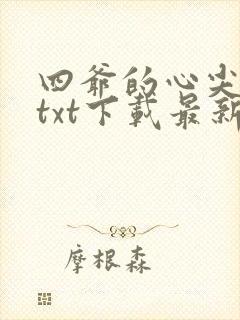 四爷的心尖
txt下载最新
摩根森